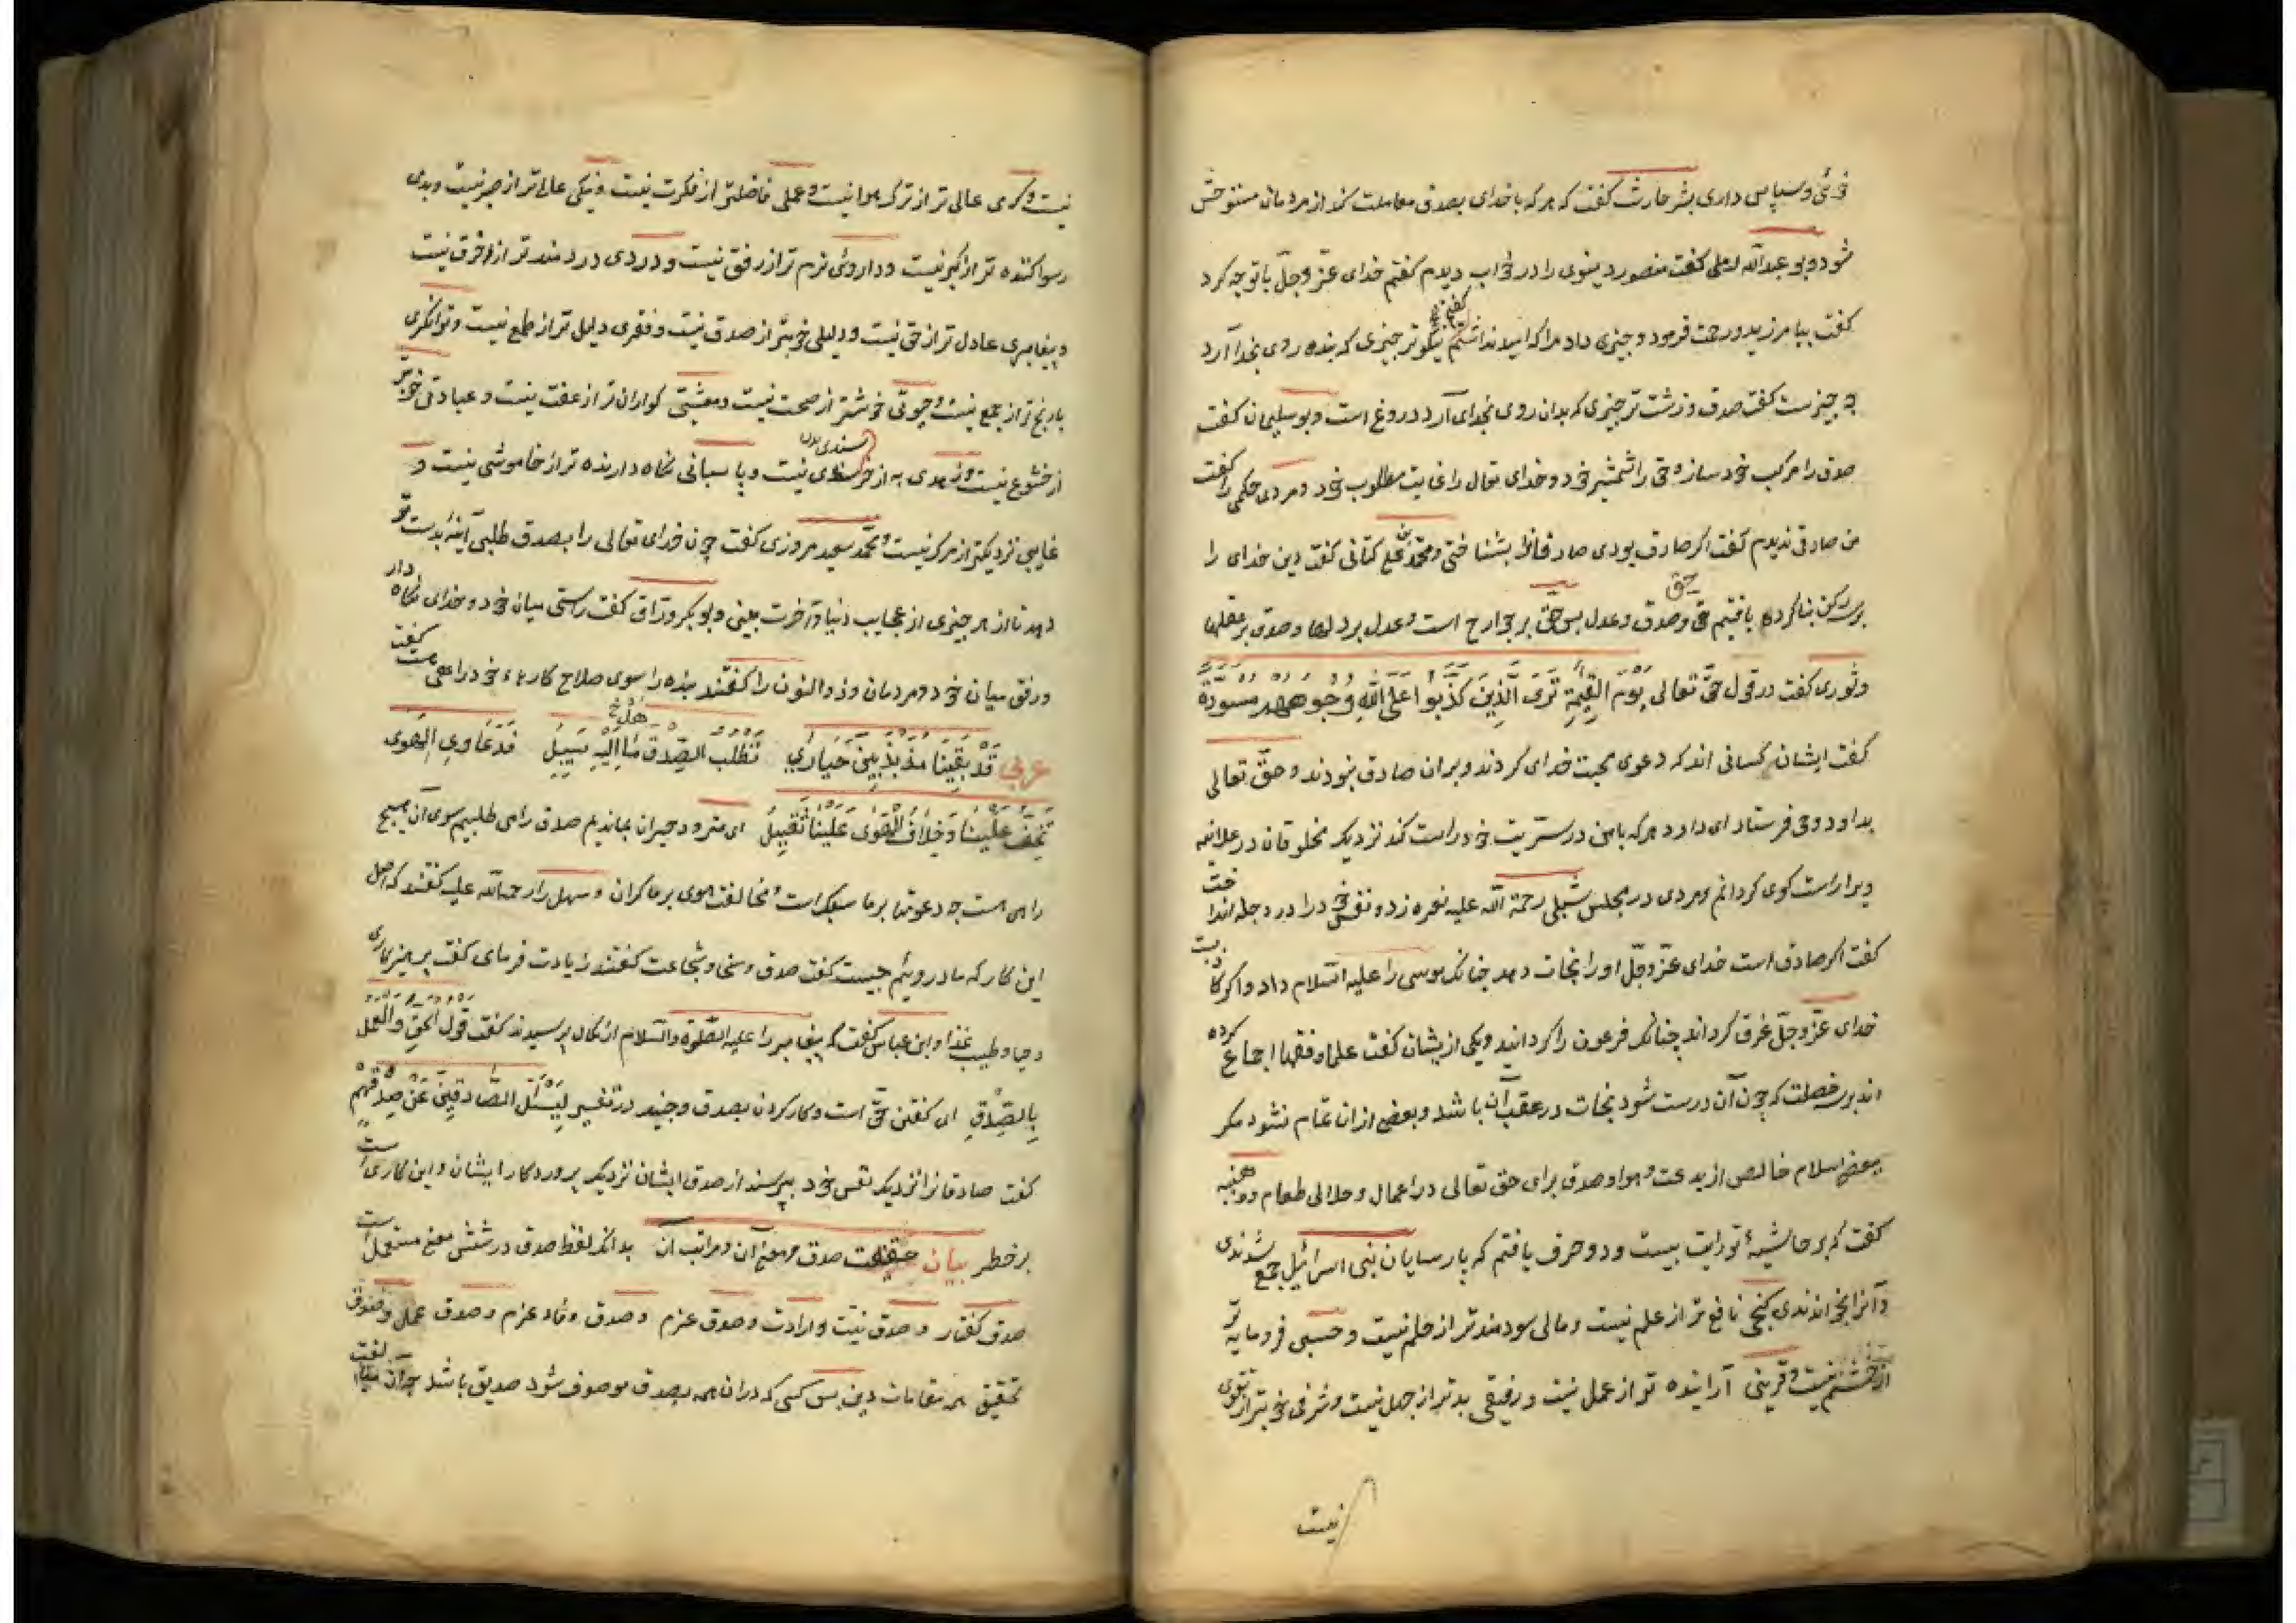 خوئی و سپاس داری بشر حارث گفت که هر که با خدای بصدق معاملت کند از مردمان مستوحش
شود و بو عبد الله رملی گفت منصور دینوری را در خواب دیدم گفتم خدای عزّ و جلّ با تو چه کرد
گفت بیامرزید و رحمت فرمود و چیزی داد مرا که امید نداشتم گفتم نیکو تر چیزی که بنده روی بخدا آرد
چه چیزست گفت صدق و زشت تر چیزی که بدان روی بخدای آرد دروغ است و بو سلیمان گفت
صدق را مرکب خود ساز و حق را شمشیر خود و خدای تعالی را غایت مطلوب خود و مردی حکیمی را گفت
من صادقی ندیدم گفت اگر صادق بودی صادقانرا بشناختی و محمد علی کتانی گفت دین خدای را
بر سه رکن بنا کرده یافتیم حق و صدق و عدل پس حق بر جوارح است و عدل بر دلها و صدق بر عقلها
و ثوری گفت در قول حقّ تعالی یَوْمَ الْقِیٰمَةِ تَرَی الَّذِینَ کَذَبُوا عَلَی اللّٰهِ وُجُوهُهُمْ مُسْوَدَّةٌ
گفت ایشان کسانی اند که دعوی محبت خدای کردند و بر ان صادق نبودند و حقّ تعالی
بداود وحی فرستاد ای داود هر که با من در سریرت خود راست کند نزدیک مخلوقان در علانیه
ویرا راست گوی گردانم و مردی در مجلس شبلی رحمة الله علیه نعره زد و نفس خود را در دجله انداخت
گفت اگر صادق است خدای عزّ و جلّ او را نجات دهد چنانک موسی را علیه السلام داد و اگر کاذبست
خدای عزّ و جلّ غرق گرداند چنانک فرعون را گردانید و یکی از یشان گفت علما و فقها اجماع کرده
اند بر سه خصلت که چون آن درست شود نجات در عقب آن باشد و بعضی از ان تمام نشود مگر
ببعضی اسلام خالص از بدعت و هوا و صدق برای حق تعالی در اعمال و حلالی طعام و وهب منبه
گفت که بر حاشیهٔ توریت بیست و دو حرف یافتم که پارسایان بنی اسرائیل جمع شدندی
و آنرا بخواندندی گنجی نافع تر از علم نیست و مالی سودمند تر از حلم نیست و حسبی فرومایه تر
از خشم نیست و قرینی آراینده تر از عمل نیست و رفیقی بدتر از جهل نیست و شرفی خوبتر از تقوی
نیست
نیست و کرمی عالی تر از ترک هوا نیست و عملی فاضلتر از فکرت نیست و نیکی عالی تر از صبر نیست و بدی
رسوا کننده تر از کبر نیست و داروئی نرم تر از رفق نیست و دردی دردمند تر از خرق نیست
و پیغامبری عادل تر از حق نیست و دلیلی خوبتر از صدق نیست و فقری ذلیل تر از طمع نیست و توانگری
با رنج تر از جمع نیست و حیوتی خوشتر از صحت نیست و معیشتی گواران تر از عفت نیست و عبادتی خوبتر
از خشوع نیست و زهدی به از خرسندی نیست و پاسبانی نگاه دارنده تر از خاموشی نیست و
غایبی نزدیکتر از مرگ نیست و محمد سعید مروزی گفت چون خدای تعالی را بصدق طلبی آینهٔ بدست تو
دهد تا از هر چیزی از عجایب دنیا و آخرت بینی و بو بکر ورّاق گفت راستی میان خود و خدای نگاه دار
و رفق میان خود و مردمان و ذو النون را گفتند بنده را سوی صلاح کارهاء خود راهی هست گفت
عربی قَدْ بَقِینَا مُذَبْذَبِینَ حَیَارَی نَطْلُبُ الصِّدْقَ مَا اِلَیْهِ سَبِیلُ فَدَعَاوِی الْهَوَی
تَخِفُّ عَلَیْنَا وَ خِلَافُ الْهَوَی عَلَیْنَا ثَقِیلُ ای متردد حیران بماندیم صدق را می طلبیم سوی آن هیچ
راهی هست چه دعوتها بر ما سبک است و مخالفت هوی بر ما گران و سهل را رحمة الله علیه گفتند که اصل
این کار که ما درویئم چیست گفت صدق و سخا و شجاعت گفتند زیادت فرمای گفت پرهیزگاری
و حیا و طیب غذا و ابن عباس گفت که پیغامبر را علیه الصلوة و السلام از کمال پرسیدند گفت قَوْلُ الْحَقِّ وَ الْعَمَلُ
بِالصِّدْقِ ای گفتن حق است و کار کردن بصدق و جنید در تفسیر لِیَسْئَلَ الصَّادِقِینَ عَنْ صِدْقِهِمْ
گفت صادقانرا نزدیک نفس خود بپرسند از صدق ایشان نزدیک پروردگار ایشان و این کاری است
بر خطر بیان حقیقت صدق و معنی آن و مراتب آن بدانک لفظ صدق در شش معنی مستعمل است
صدق گفتار و صدق نیت و ارادت و صدق عزم و صدق وفاء عزم و صدق عمل و صدق
تحقیق همه مقامات دین پس کسی که در ان همه بصدق موصوف شود صدیق باشد